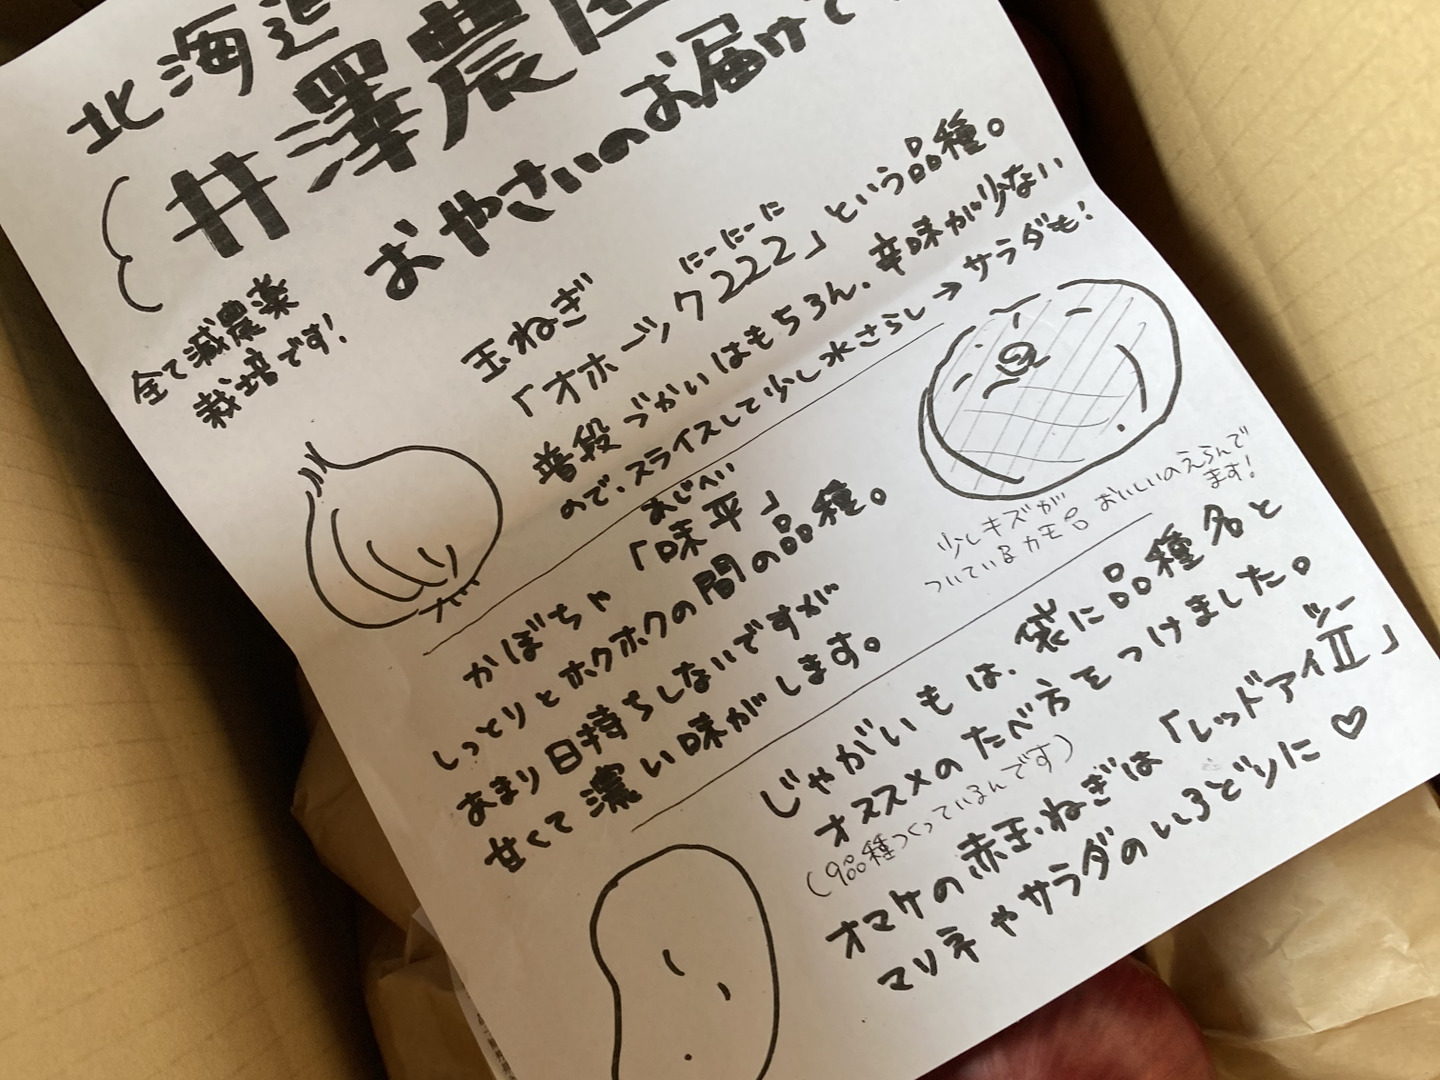 北海道
井澤農園
おやさいのお届けで
全て減農薬
栽培です!
玉ねぎ
にーにーに
「オホーツク222」という品種。
普段づかいはもちろん、辛味が少ない
ので、スライスして少し水さらし→サラダも!
あじへい
「味平」
かぼちゃ
しっとりとホクホクの間の品種。
あまり日持ちしないですが
甘くて濃い味がします。
少しキズが
ついているカモ
おいしいのえらんで
ます!
じゃがいもは、袋に品種名と
オススメのたべ方をつけました。
(9品種つくっているんです)
ツー
オマケの赤玉ねぎは「レッドアイⅡ」
マリネやサラダのいろどりに♡